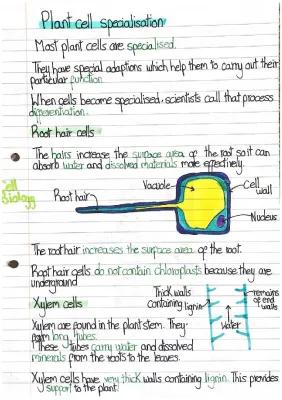 Plant cell specialisation
Most plant cells are specialised.
They have special adaptions which help them to carry out their
particular function
When cells become specialised, scientists call that process
differentiation.
Root hair cells
The hairs increase the surface area of the root so it can
absorb water and dissolved materials more effectively.
Cell
Biology
Vacuole
Cell
wall
Root hair
Nucleus
The root hair increases the surface area of the root.
Root hair cells do not contain chloroplasts because they are
underground
Xylem cells
Thick walls
containing
lignin
remains
of end
walls
water
Xylem are found in the plant stem. They
form long tubes.
These tubes carry water and dissolved
minerals from the roots to the leaves.
Xylem cells have very thick walls containing lignin. This provides
support to the plant.